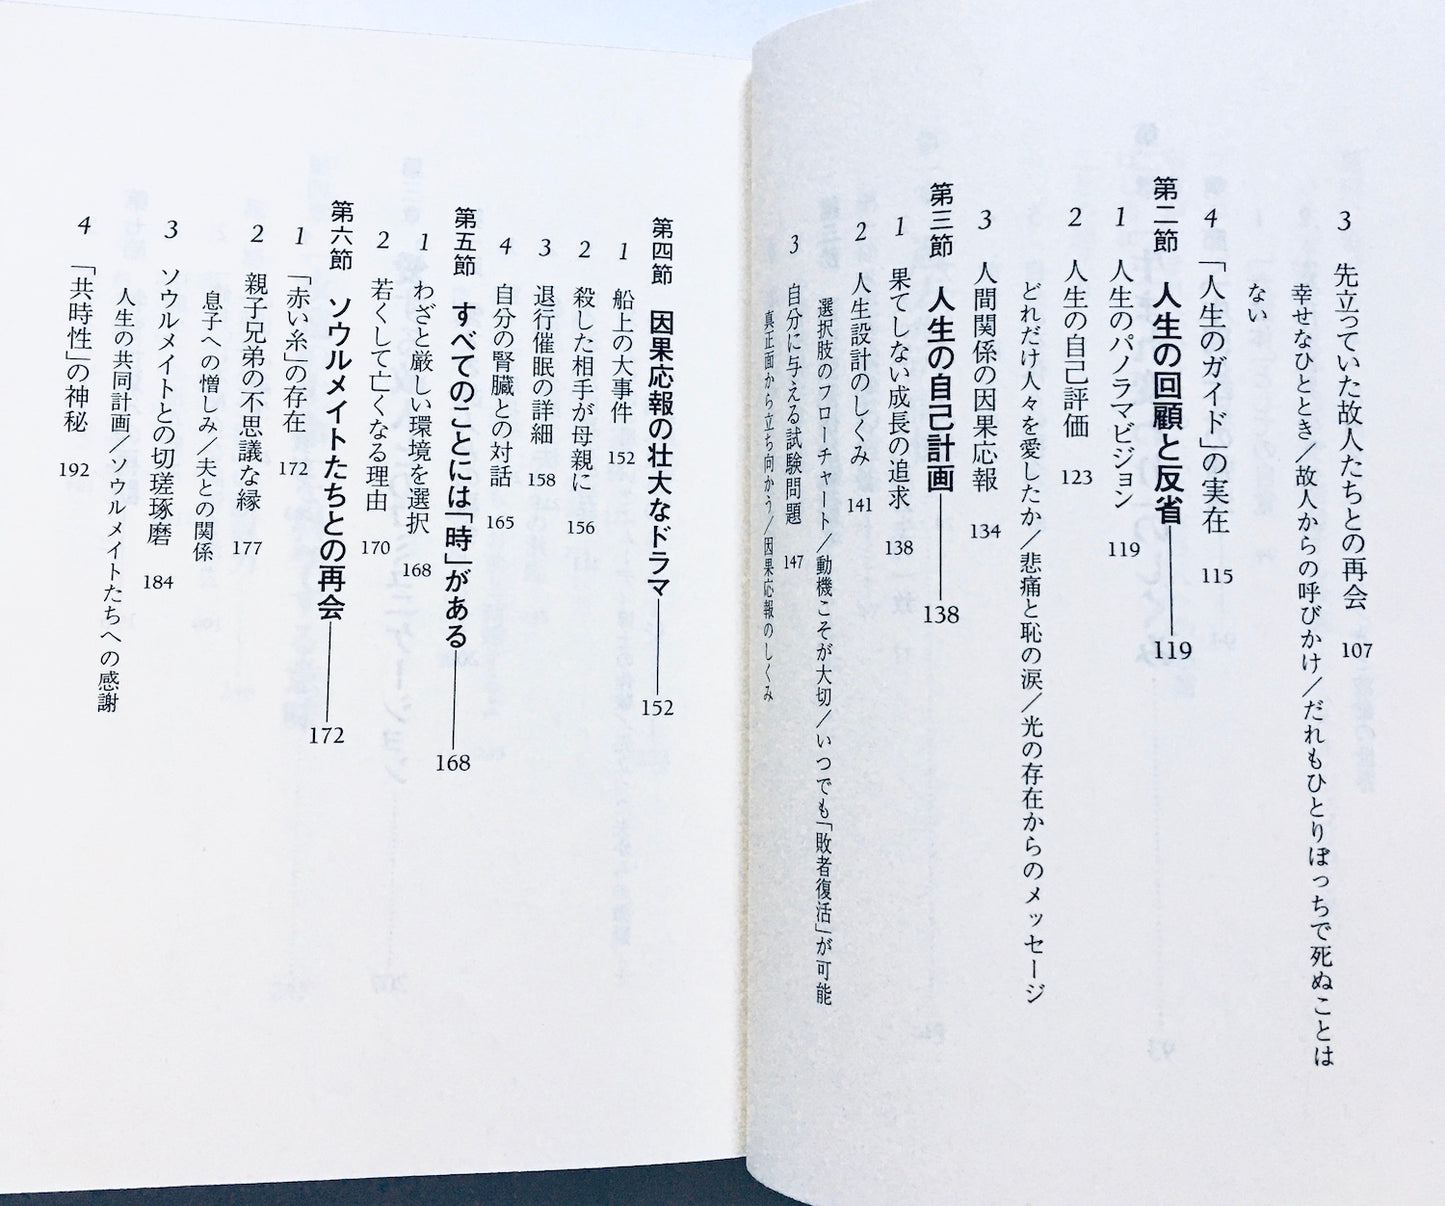 3 先立っていた故人たちとの再会 107
幸せなひととき／故人からの呼びかけ／だれもひとりぼっちで死ぬことは
ない
4 「人生のガイド」の実在 115
第二節 人生の回顧と反省 119
1 人生のパノラマビジョン 119
2 人生の自己評価 123
どれだけ人々を愛したか／悲痛と恥の涙／光の存在からのメッセージ
3 人間関係の因果応報 134
第三節 人生の自己計画 138
1 果てしない成長の追求 138
2 人生設計のしくみ 141
選択肢のフローチャート／動機こそが大切／いつでも「敗者復活」が可能
3 自分に与える試験問題 147
真正面から立ち向かう／因果応報のしくみ
第四節 因果応報の壮大なドラマ 152
1 船上の大事件 152
2 殺した相手が母親に 156
3 退行催眠の詳細 158
4 自分の腎臓との対話 165
第五節 すべてのことには「時」がある 168
1 わざと厳しい環境を選択 168
2 若くして亡くなる理由 170
第六節 ソウルメイトたちとの再会 172
1 「赤い糸」の存在 172
2 親子兄弟の不思議な縁 177
息子への憎しみ／夫との関係
3 ソウルメイトとの切瑳琢磨 184
人生の共同計画／ソウルメイトたちへの感謝
4 「共時性」の神秘 192